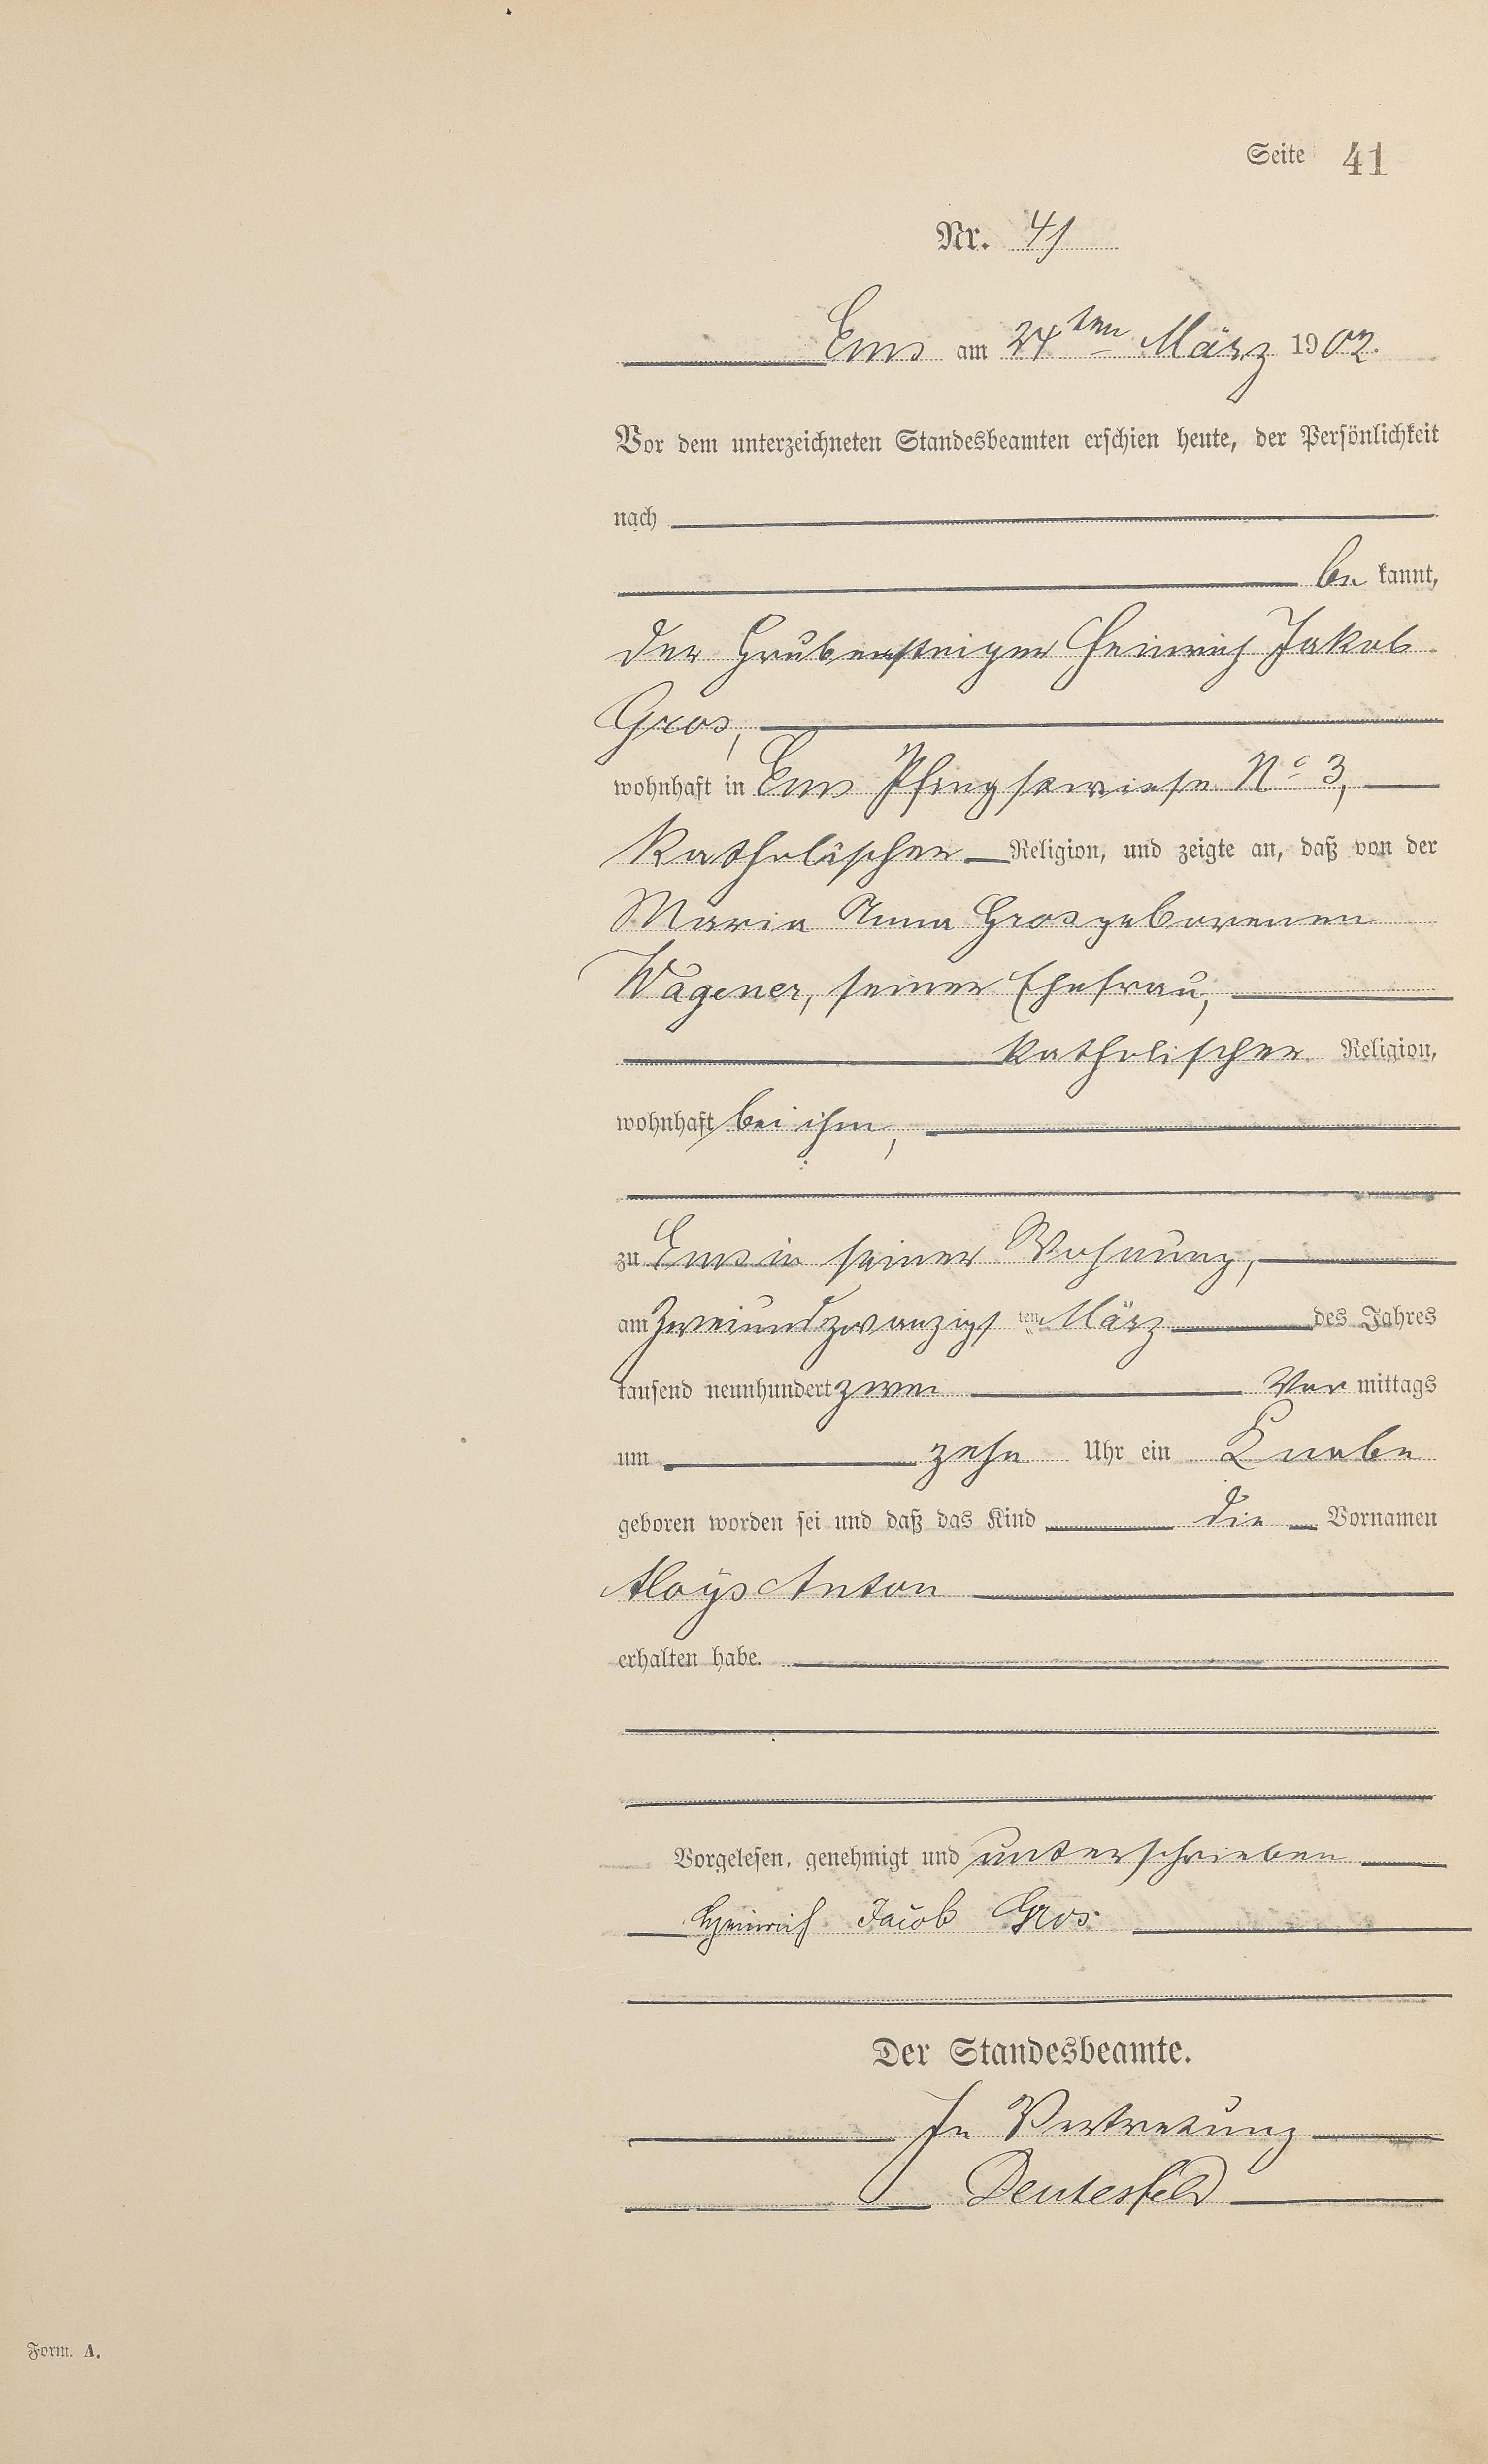 Seite 41
Nr. 41
Ems am 24ten März 1902.
Vor dem unterzeichneten Standesbeamten erschien heute, der Persönlichkeit
nach
be kannt,
der Grubensteiger Heinrich Jakob
Gros,
wohnhaft in Ems Pfingstwiese No 3,
katholischer Religion, und zeigte an, daß von der
Maria Anna Gros geborenen
Wagener, seiner Ehefrau,
katholischer Religion,
wohnhaft bei ihm,
zu Ems in seiner Wohnung,
am zweiundzwanzigsten März des Jahres
tausend neunhundert zwei Vor mittags
um zehn Uhr ein Knabe
geboren worden sei und daß das Kind die Vornamen
Aloys Anton
erhalten habe.
Vorgelesen, genehmigt und unterschrieben
Heinrich Jacob Gros.
Der Standesbeamte.
In Vertretung
Deutesfeld
Form. A.